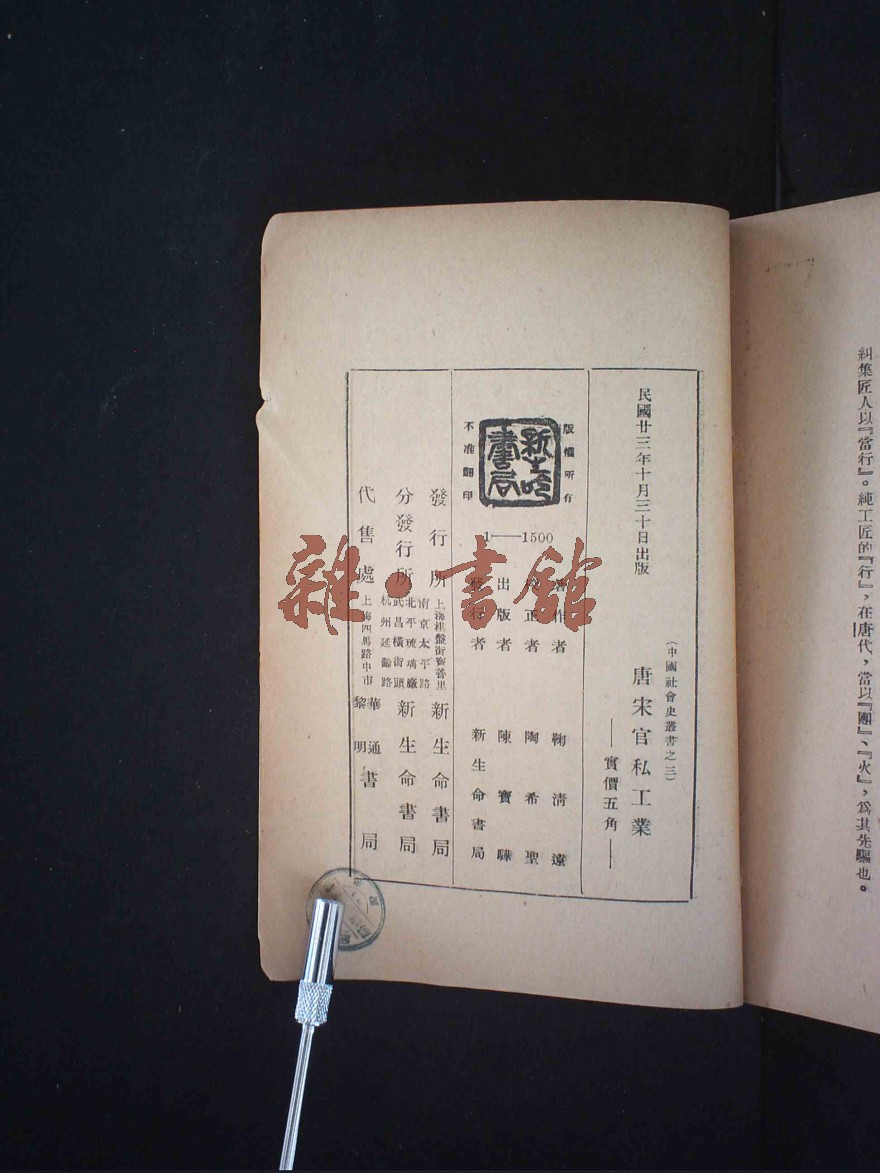 糾集匠人以『當行』。純工匠的『行』，在唐代，當以『團』、『火』，爲其先驅也。
民國廿三年十月三十日出版
（中國社會史叢書之三）
唐宋官私工業
——實價五角——
版權所有
新生命書局
不准翻印
1——1500
著作者 鞠清遠
校正者 陶希聖
出版者 陳寶驊
發行者 新生命書局
發行所 上海棋盤街寶善里 新生命書局
分發行所 南京太平路 北平琉璃廠 武昌橫街頭 杭州延齡路 新生命書局
代售處 上海四馬路中市 華通 黎明 書局
雜·書館